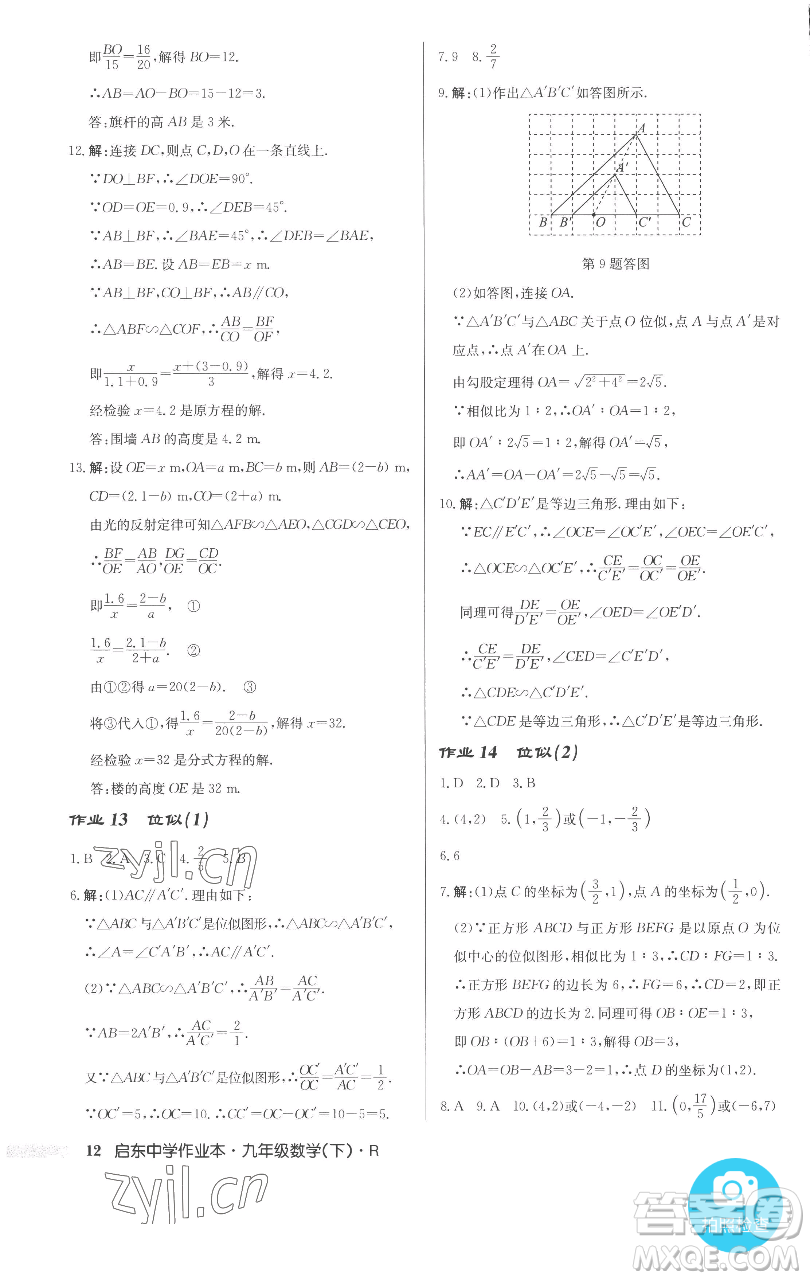 即BO/15=16/20,解得 BO=12.
∴AB=AO-BO=15-12=3.
答:旗杆的高 AB 是 3 米.
12.解:连接 DC,则点 C,D,O 在一条直线上.
∵DO⊥BF,∴∠DOE=90°.
∵OD=OE=0.9,∴∠DEB=45°.
∵AB⊥BF,∴∠BAE=45°,∴∠DEB=∠BAE,
∴AB=BE.设 AB=EB=x m.
∵AB⊥BF,CO⊥BF,∴AB∥CO,
∴△ABF∽△COF,∴AB/CO=BF/OF,
即x/(1.1+0.9)=(x+(3-0.9))/3,解得 x=4.2.
经检验 x=4.2 是原方程的解.
答:围墙 AB 的高度是 4.2 m.
13.解:设 OE=x m,OA=a m,BC=b m,则 AB=(2-b) m,
CD=(2.1-b) m,CO=(2+a) m.
由光的反射定律可知△AFB∽△AEO,△CGD∽△CEO,
∴BF/OE=AB/AO,DG/OE=CD/OC.
即1.6/x=(2-b)/a, ①
1.6/x=(2.1-b)/(2+a). ②
由①②得 a=20(2-b). ③
将③代入①,得1.6/x=(2-b)/(20(2-b)),解得 x=32.
经检验 x=32 是分式方程的解.
答:楼的高度 OE 是 32 m.
作业 13 位似(1)
1.B 2.A 3.C 4. 5.B
6.解:(1)AC∥A′C′.理由如下:
∵△ABC 与△A′B′C′是位似图形,∴△ABC∽△A′B′C′,
∴∠A=∠C′A′B′,∴AC∥A′C′.
(2)∵△ABC∽△A′B′C′,∴AB/A′B′=AC/A′C′.
∵AB=2A′B′,∴AC/A′C′=2/1.
又∵△ABC 与△A′B′C′是位似图形,∴OC′/OC=A′C′/AC=1/2.
∵OC′=5,∴OC=10,∴CC′=OC-OC′=10-5=5.
12 启东中学作业本·九年级数学(下)·R
7.9 8.2/7
9.解:(1)作出△A′B′C′如答图所示.
A
A′
B B′ O C′ C
第 9 题答图
(2)如答图,连接 OA.
∵△A′B′C′与△ABC 关于点 O 位似,点 A 与点 A′是对
应点,∴点 A′在 OA 上.
由勾股定理得 OA=√(2²+4²)=2√5.
∵相似比为 1∶2,∴OA′∶OA=1∶2,
即 OA′∶2√5=1∶2,解得 OA′=√5,
∴AA′=OA-OA′=2√5-√5=√5.
10.解:△C′D′E′是等边三角形.理由如下:
∵EC∥E′C′,∴∠OCE=∠OC′E′,∠OEC=∠OE′C′,
∴△OCE∽△OC′E′,∴CE/C′E′=OC/OC′=OE/OE′.
同理可得DE/D′E′=OE/OE′,∠OED=∠OE′D′.
∴CE/C′E′=DE/D′E′,∠CED=∠C′E′D′,
∴△CDE∽△C′D′E′.
∵△CDE 是等边三角形,∴△C′D′E′是等边三角形.
作业 14 位似(2)
1.D 2.D 3.B
4.(4,2) 5.(1,2/3)或(-1,-2/3)
6.6
7.解:(1)点 C 的坐标为(3/2,1),点 A 的坐标为(1/2,0).
(2)∵正方形 ABCD 与正方形 BEFG 是以原点 O 为位
似中心的位似图形,且相似比为 1∶3,∴CD∶FG=1∶3.
∴正方形 BEFG 的边长为 6,∴FG=6,∴CD=2,即正
方形 ABCD 的边长为 2.同理可得 OB∶OE=1∶3,
即 OB∶(OB+6)=1∶3,解得 OB=3,
∴OA=OB-AB=3-2=1,∴点 D 的坐标为(1,2).
8.A 9.A 10.(4,2) 11.(0,17/5)或(-6,7)
zyjl.cn
zyjl.cn
拍照检查
答案圈
MXQE.COM